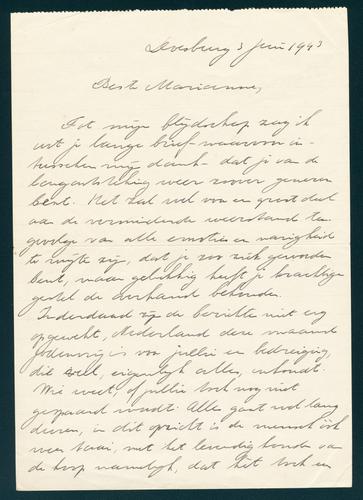 Doesburg 3 Juni 1943
Beste Marianne,
Tot mijn blijdschap zag ik
uit je lange brief - waarvoor in-
tusschen mijn dank - dat je van de
longontsteking weer zoover genezen
bent. Het zal wel voor een groot deel
aan de verminderde weerstand ten-
gevolge van alle emoties en narigheid
te wijten zijn, dat je zoo ziek geworden
bent, maar gelukkig heeft je krachtige
gestel de overhand behouden.
Inderdaad zijn de berichten niet erg
opgewekt, Nederland deze maand
Jodenvrij is voor jullie een bedreiging,
die wel, eigenlijk alles, inhoudt.
Wie weet, of jullie toch nog niet
gespaard wordt. Alles gaat wel lang
duren, in dit opzicht is de mensch ook
weer taai, met het levendig houden van
de hoop namelijk, dat het toch een